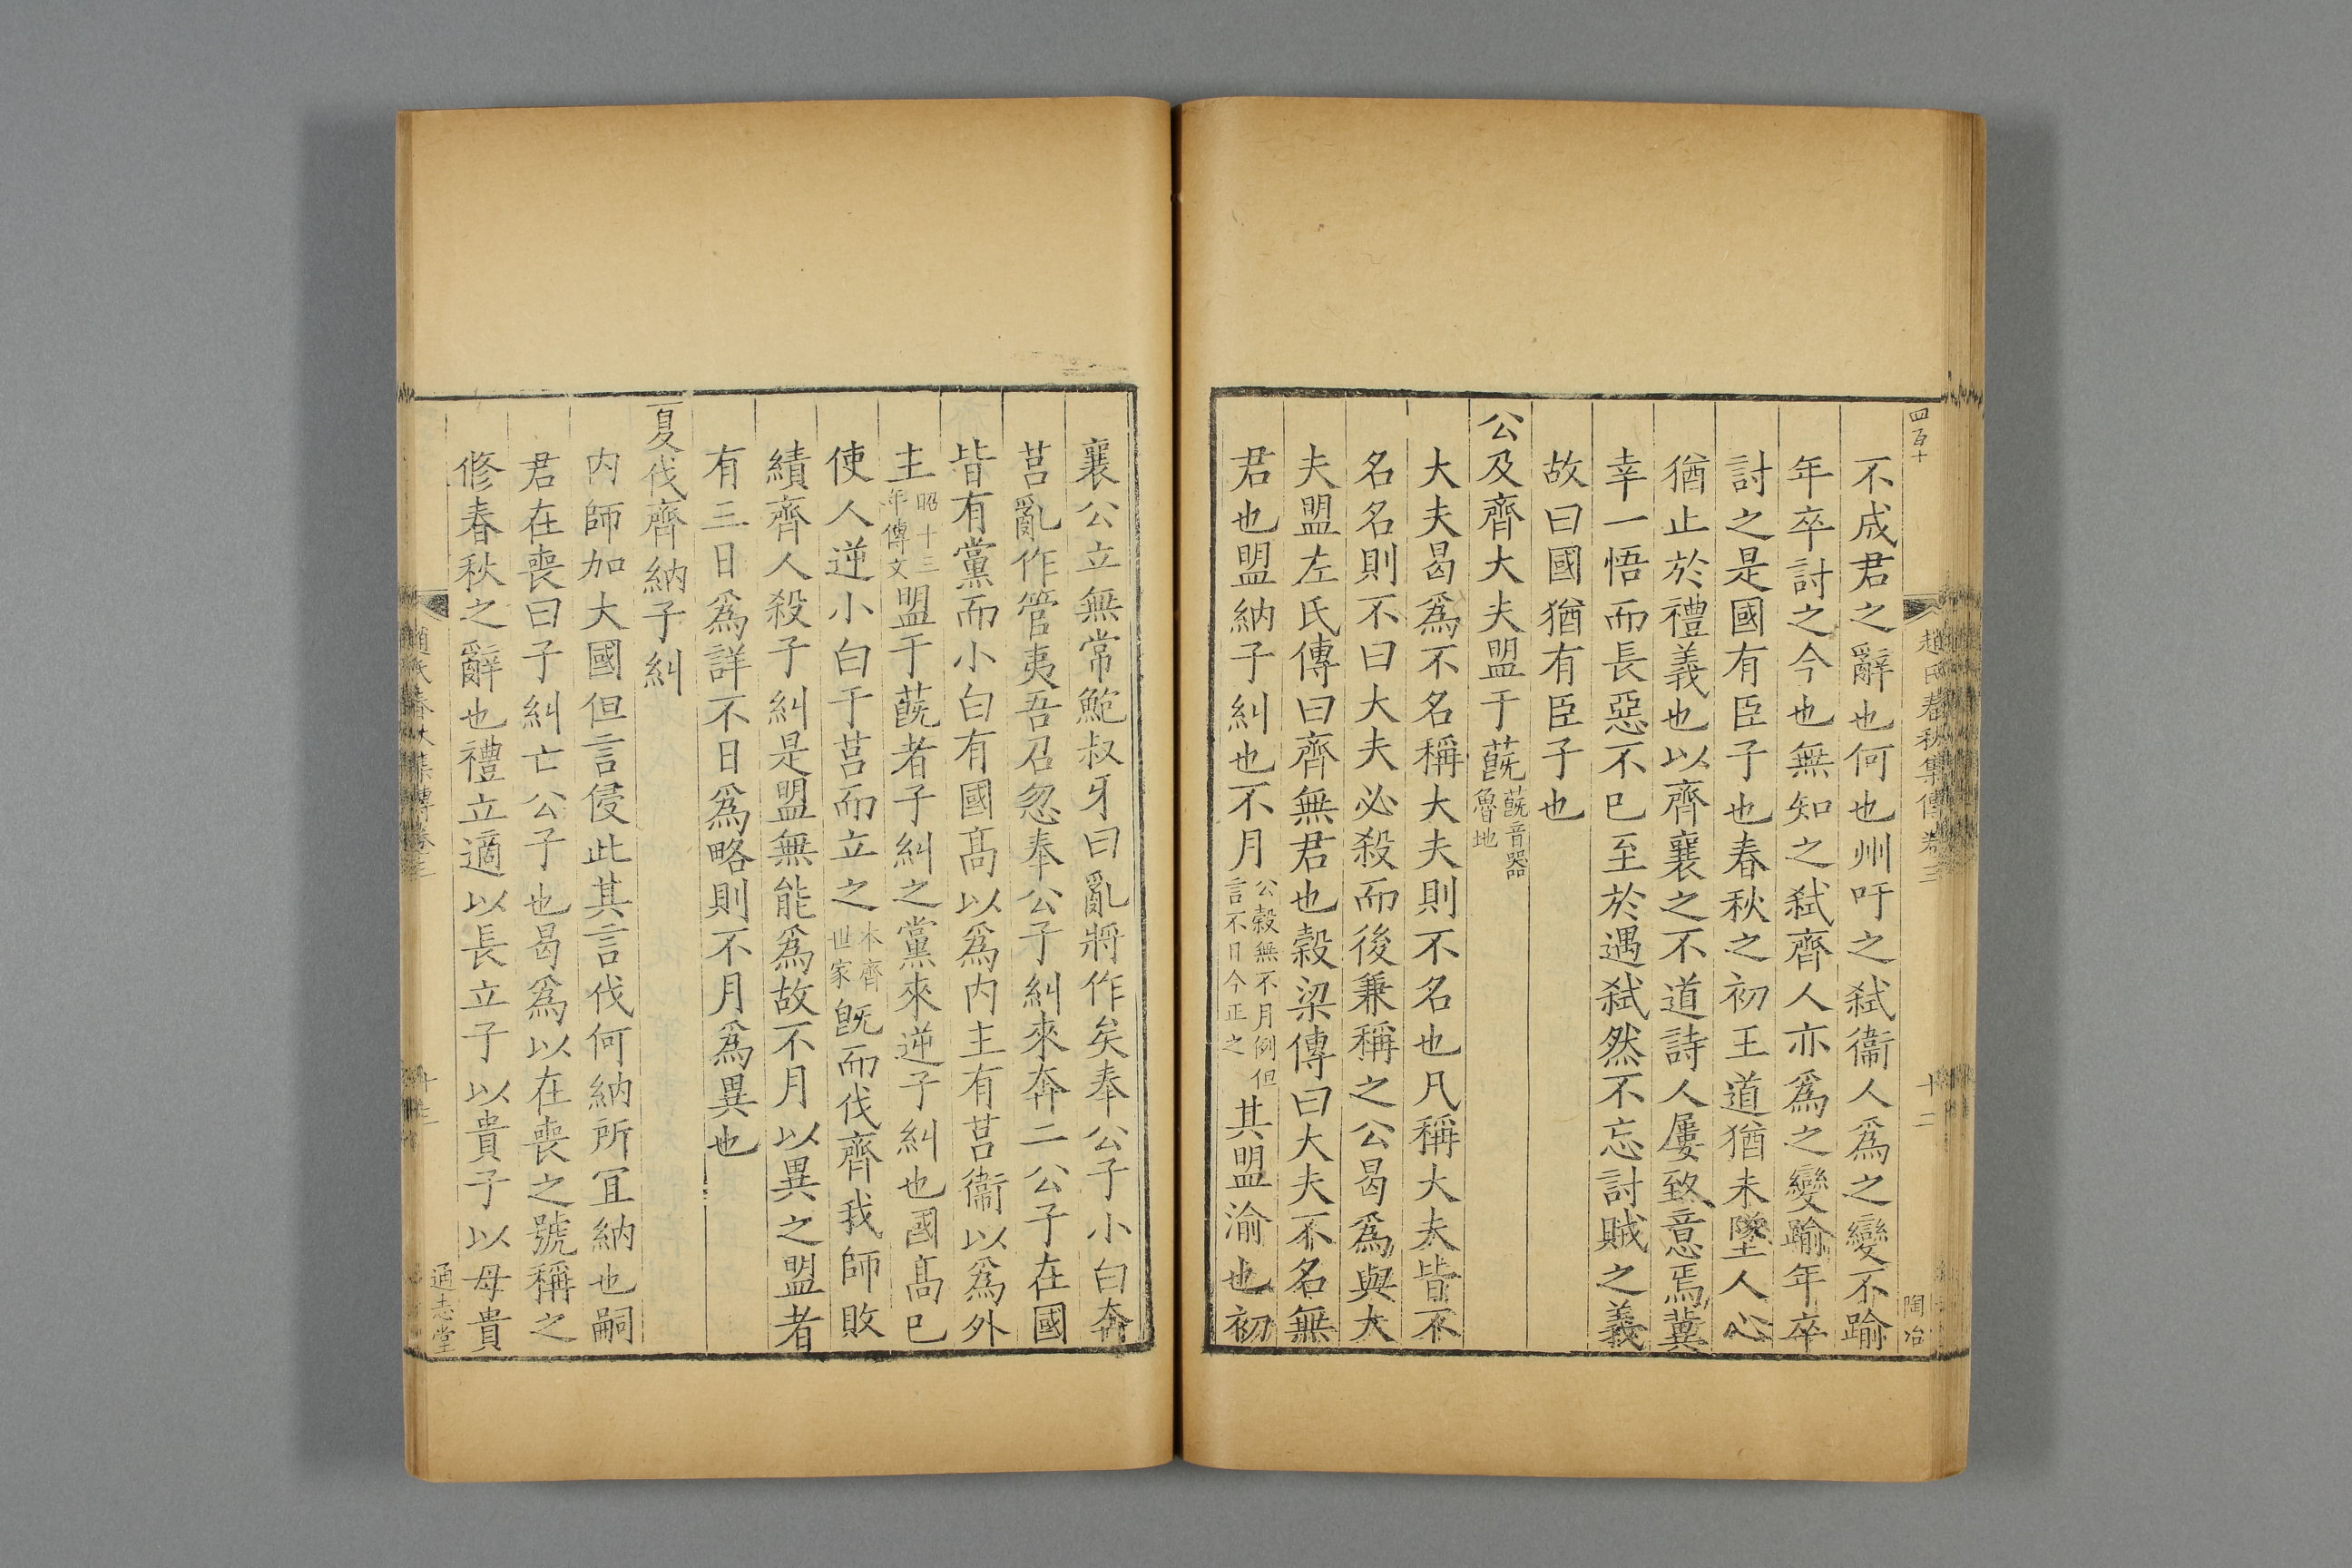 四百十
趙氏春秋集傳卷三
十二
陶冶
不成君之辭也何也州吁之弑衞人爲之變不踰
年卒討之今也無知之弑齊人亦爲之變踰年卒
討之是國有臣子也春秋之初王道猶未墜人心
猶止於禮義也以齊襄之不道詩人屢致意焉冀
幸一悟而長惡不巳至於遇弑然不忘討賊之義
故曰國猶有臣子也
公及齊大夫盟于蔇蔇音器魯地
大夫曷爲不名稱大夫則不名也凡稱大夫皆不
名名則不曰大夫必殺而後兼稱之公曷爲與大
夫盟左氏傳曰齊無君也穀梁傳曰大夫不名無
君也盟納子糾也不月公穀無不月例但言不日今正之其盟渝也初
襄公立無常鮑叔牙曰亂將作矣奉公子小白奔
莒亂作管夷吾召忽奉公子糾來奔二公子在國
皆有黨而小白有國高以爲內主有莒衞以爲外
主昭十三年傳文盟于蔇者子糾之黨來逆子糾也國高巳
使人逆小白于莒而立之本齊世家旣而伐齊我師敗
績齊人殺子糾是盟無能爲故不月以異之盟者
有三日爲詳不日爲略則不月爲異也
夏伐齊納子糾
內師加大國但言侵此其言伐何納所宜納也嗣
君在喪曰子糾亡公子也曷爲以在喪之號稱之
修春秋之辭也禮立適以長立子以貴子以母貴
趙氏春秋集傳卷三
通志堂